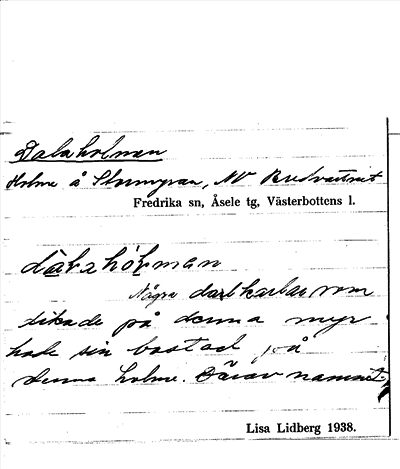 Dalaholman
Holme å Stormyran, NV Bredvattnet
Fredrika sn, Åsele tg, Västerbottens l.
Några dalkarlar som
dikade på denna myr
hade sin bostad på
denna holme. Därav namnet.
Lisa Lidberg 1938.